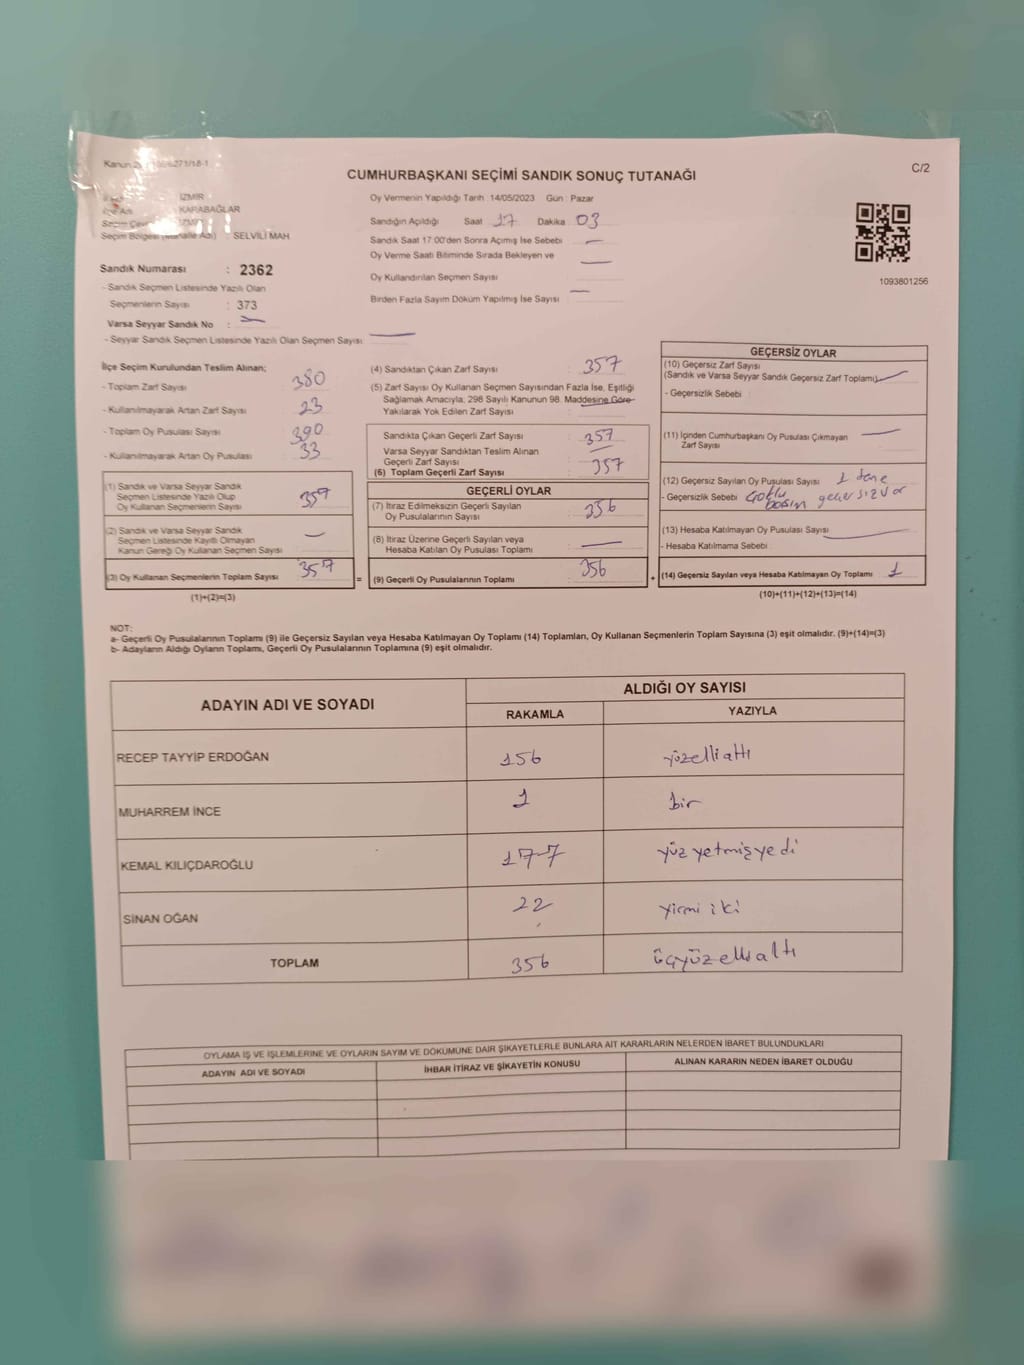 C/2
CUMHURBAŞKANI SEÇİMİ SANDIK SONUÇ TUTANAĞI
İZMİR
İlçe Adı KARABAĞLAR
Seçim Bölgesi (Mahalle Adı) : SELVİLİ MAH.
Sandık Numarası : 2362
- Sandık Seçmen Listesinde Yazılı Olan
Seçmenlerin Sayısı : 373
Varsa Seyyar Sandık No : —
- Seyyar Sandık Seçmen Listesinde Yazılı Olan Seçmen Sayısı : —
Oy Vermenin Yapıldığı Tarih :14/05/2023 Gün : Pazar
Sandığın Açıldığı Saat 17 Dakika 03
Sandık Saat 17:00'den Sonra Açımış İse Sebebi —
Oy Verme Saati Bitiminde Sırada Bekleyen ve —
Oy Kullandırılan Seçmen Sayısı :
Birden Fazla Sayım Döküm Yapılmış İse Sayısı : —
1093801256
İlçe Seçim Kurulundan Teslim Alınan;
- Toplam Zarf Sayısı : 380
- Kullanılmayarak Artan Zarf Sayısı : 23
- Toplam Oy Pusulası Sayısı : 390
- Kullanılmayarak Artan Oy Pusulası : 33
(1) Sandık ve Varsa Seyyar Sandık
Seçmen Listesinde Yazılı Olup
Oy Kullanan Seçmenlerin Sayısı : 357
(2) Sandık ve Varsa Seyyar Sandık
Seçmen Listesinde Kayıtlı Olmayan
Kanun Gereği Oy Kullanan Seçmen Sayısı : —
(3) Oy Kullanan Seçmenlerin Toplam Sayısı : 357
(1)+(2)=(3)
(4) Sandıktan Çıkan Zarf Sayısı : 357
(5) Zarf Sayısı Oy Kullanan Seçmen Sayısından Fazla İse, Eşitliği
Sağlamak Amacıyla; 298 Sayılı Kanunun 98. Maddesine Göre
Yakılarak Yok Edilen Zarf Sayısı : —
Sandıkta Çıkan Geçerli Zarf Sayısı : 357
Varsa Seyyar Sandıktan Teslim Alınan
Geçerli Zarf Sayısı : —
(6) Toplam Geçerli Zarf Sayısı : 357
GEÇERLİ OYLAR
(7) İtiraz Edilmeksizin Geçerli Sayılan
Oy Pusulalarının Sayısı : 356
(8) İtiraz Üzerine Geçerli Sayılan veya
Hesaba Katılan Oy Pusulası Toplamı : —
= (9) Geçerli Oy Pusulalarının Toplamı : 356
GEÇERSİZ OYLAR
(10) Geçersiz Zarf Sayısı
(Sandık ve Varsa Seyyar Sandık Geçersiz Zarf Toplamı) —
- Geçersizlik Sebebi :
(11) İçinden Cumhurbaşkanı Oy Pusulası Çıkmayan —
Zarf Sayısı
(12) Geçersiz Sayılan Oy Pusulası Sayısı : 1 tane
- Geçersizlik Sebebi geçersiz var
(13) Hesaba Katılmayan Oy Pusulası Sayısı : —
- Hesaba Katılmama Sebebi :
+ (14) Geçersiz Sayılan veya Hesaba Katılmayan Oy Toplamı : 1
(10)+(11)+(12)+(13)=(14)
NOT:
a- Geçerli Oy Pusulalarının Toplamı (9) ile Geçersiz Sayılan veya Hesaba Katılmayan Oy Toplamı (14) Toplamları, Oy Kullanan Seçmenlerin Toplam Sayısına (3) eşit olmalıdır. (9)+(14)=(3)
b- Adayların Aldığı Oyların Toplamı, Geçerli Oy Pusulalarının Toplamına (9) eşit olmalıdır.
ADAYIN ADI VE SOYADI ALDIĞI OY SAYISI
RAKAMLA YAZIYLA
RECEP TAYYİP ERDOĞAN 156 yüzelli altı
MUHARREM İNCE 1 bir
KEMAL KILIÇDAROĞLU 177 yüz yetmiş yedi
SİNAN OĞAN 22 yirmi iki
TOPLAM 356 üçyüz elli altı
OYLAMA İŞ VE İŞLEMLERİNE VE OYLARIN SAYIM VE DÖKÜMÜNE DAİR ŞİKAYETLERLE BUNLARA AİT KARARLARIN NELERDEN İBARET BULUNDUKLARI
ADAYIN ADI VE SOYADI İHBAR İTİRAZ VE ŞİKAYETİN KONUSU ALINAN KARARIN NEDEN İBARET OLDUĞU